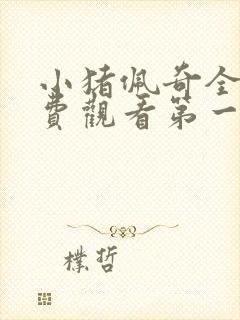 小猪佩奇全
費觀看第一
樸哲